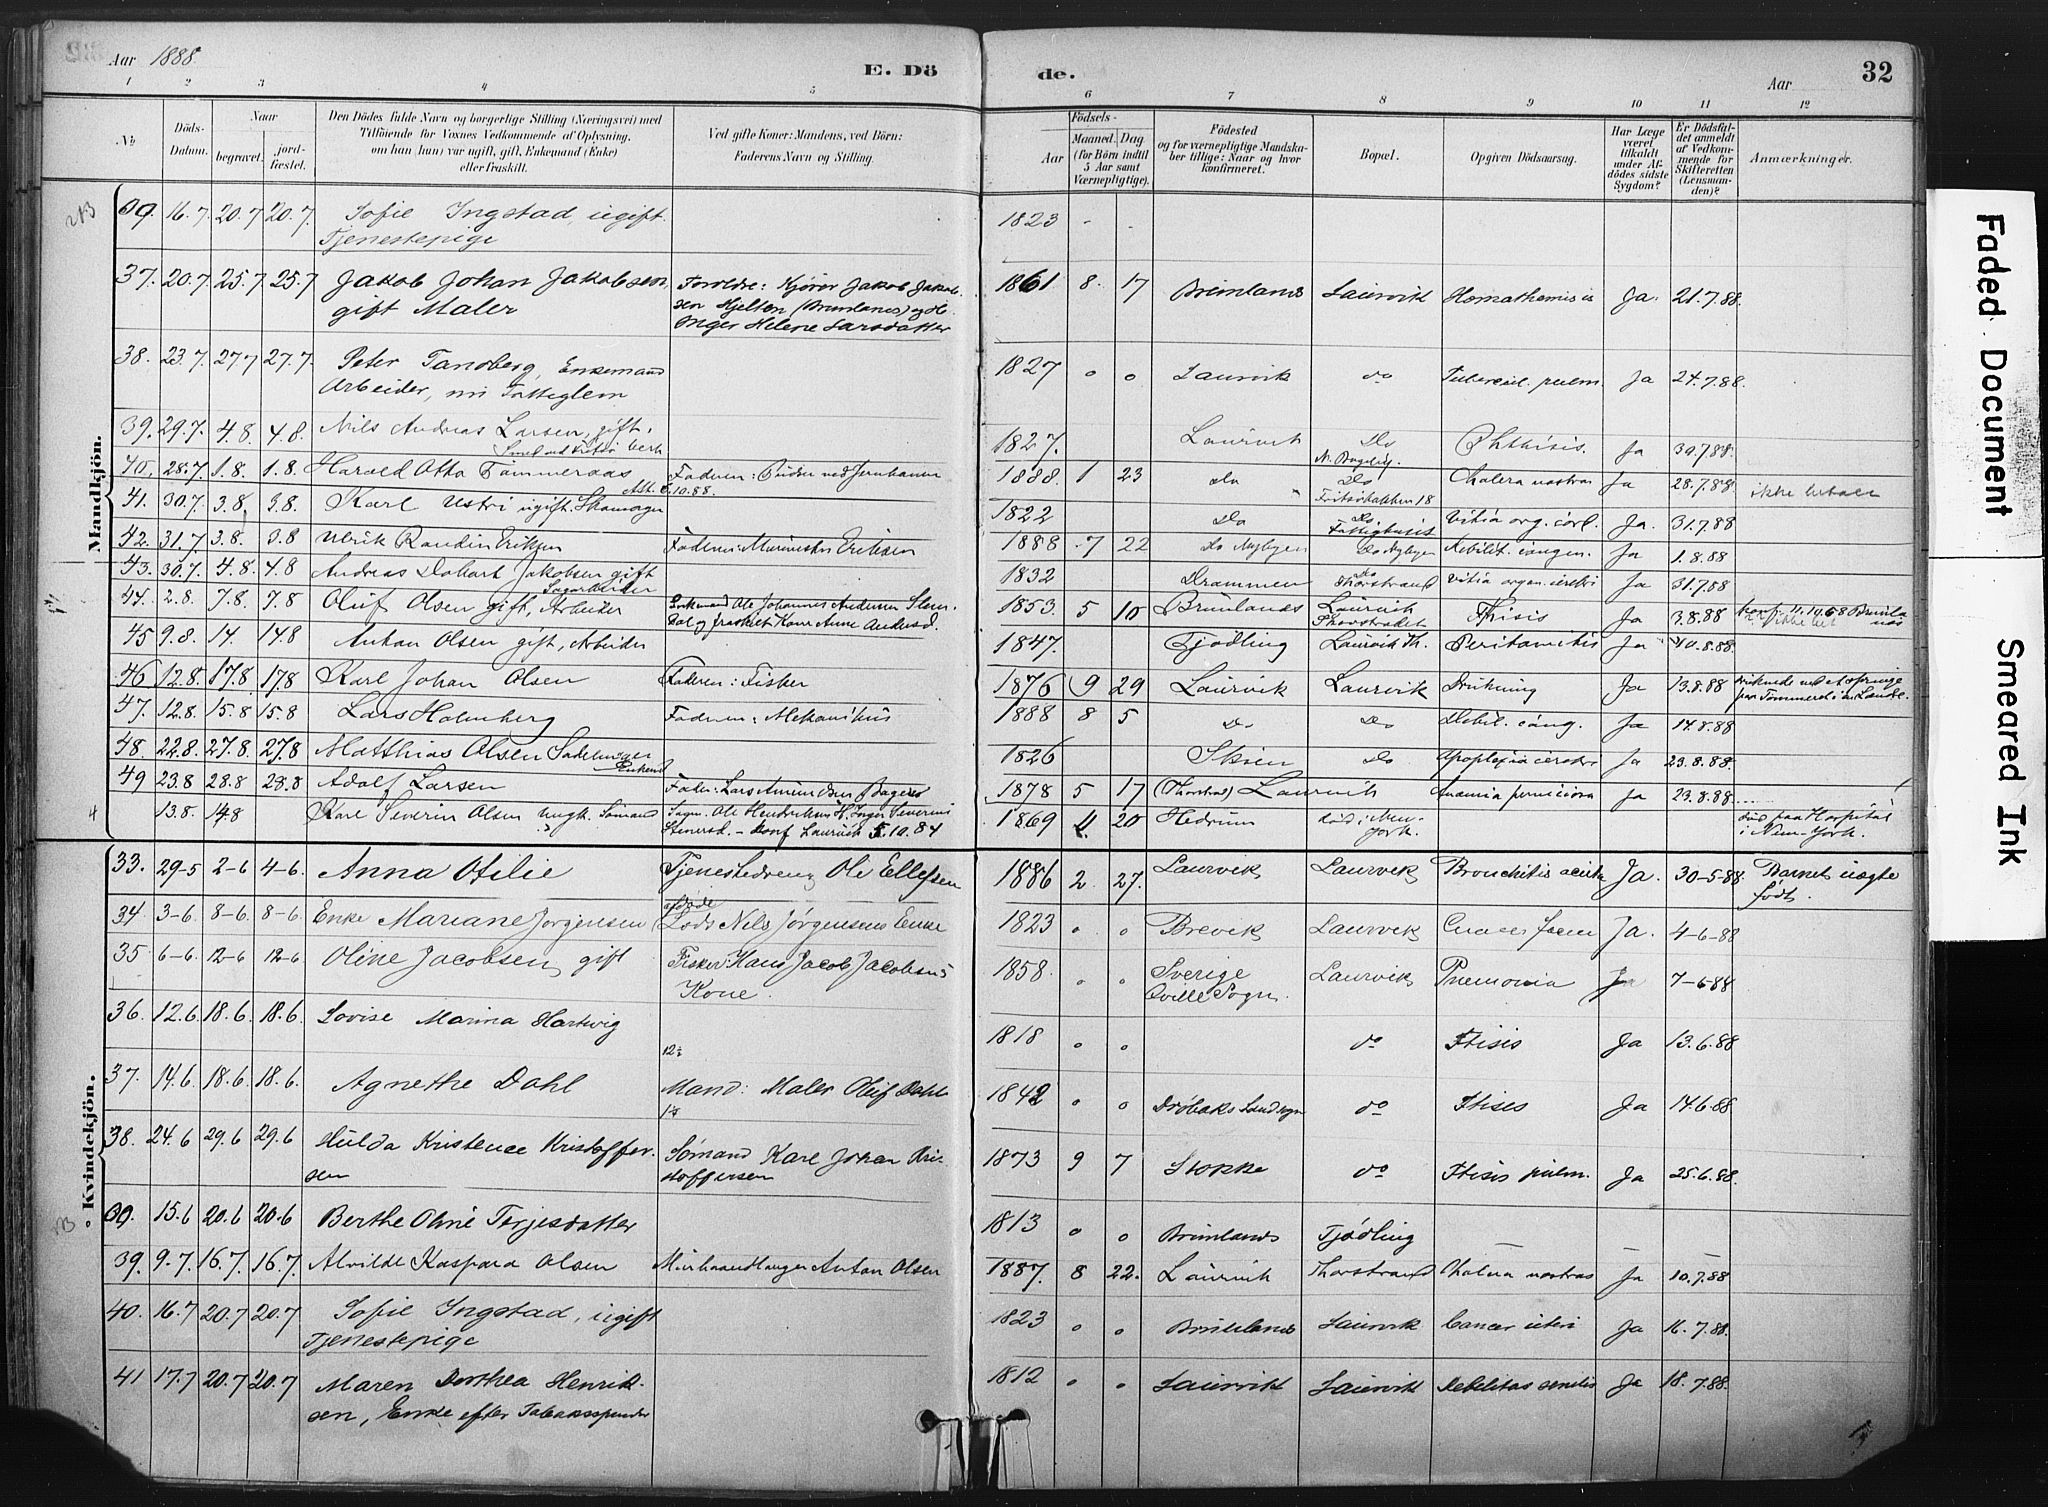 Aar 1888.
E. Dö
de.
Aar
32
1 2 3 4 5 6 7 8 9 10 11 12
No
Döds-Datum.
Naar
begravet.
jordfæstet.
Den Dödes fulde Navn og borgerlige Stilling (Næringsvei) med
Tilföiende for Voxnes Vedkommende af Oplysning,
om han (hun) var ugift, gift, Enkemand (Enke)
eller fraskilt.
Ved gifte Koner: Mandens, ved Börn:
Faderens Navn og Stilling.
Födsels-
Aar
Maaned.
Dag
(for Börn indtil
5 Aar samt
Værnepligtige).
Födested
og for værnepligtige Mandska-
ber tillige: Naar og hvor
konfirmeret.
Bopæl.
Opgiven Dödsaarsag.
Har Læge
været
tilkaldt
under Af-
dödes sidste
Sygdom?
Er Dödsfal-
det anmeldt
af Vedkom-
mende for
Skifteretten
(Lensman-
den)?
Anmærkninger.
Mandkjön.
16.7 20.7 20.7 Sofie Ingstad, ugift Tjenestepige 1823 - -
37. 20.7 25.7 25.7 Jakob Johan Jakobsen gift Maler Foreldre: Kjører Jakob Jakobsen Hjelten (Brunlanes) og H. Inger Helene Larsdatter 1861 8. 17 Brunlanes Laurvik Ja. 21.7.88.
38. 23.7. 27.7 27.7. Peter Tandberg, Enkemand Arbeider, Fattiglem 1827 o o Laurvik do Tubercul. pulm. Ja 24.7.88.
39. 29.7. 4.8. 4.8. Nils Andreas Larsen, gift. 1827. Laurvik Do Phthisis. Ja 30.7.88
40. 28.7 1.8. 1.8. Harald Otto Tømmeraas Faderen: 1888 1 23 do Do Cholera nostras Ja 28.7.88 ikke betalt
Att. 6.10.88.
41. 30.7. 3.8. 3.8. Karl Ustri ugift. Skomager 1822 Do Do Fattighuset Vitia org. cord. Ja. 31.7.88
42. 31.7 3.8. 3.8 Ulrik Randin Eriksen Faderen: Eriksen 1888 7 22 Do Nybyen Do Nybyen Debilit. congen. Ja 1.8.88
43. 30.7. 4.8. 4.8 Andreas Jakobsen gift Sagarbeider 1832 Drammen Do Thorstrand Vitia organ. cerebri Ja 31.7.88
44. 2.8. 7.8. 7.8 Oluf Olsen gift, Arbeider Enkemand Ole Johannes Andersen og fraskilt Kone Anne Andersd. 1853 5 10 Brunlanes Laurvik Ftisis Ja 3.8.88 konf. 11.10.68 Brunlanes
45 9.8. 14. 14.8 Anton Olsen gift, Arbeider 1847. Tjødling Laurvik Th. Peritonitis Ja 10.8.88.
46 12.8. 17.8 17.8 Karl Johan Olsen Faderen: Fisker 1876 9 29 Laurvik Laurvik Drukning Ja 13.8.88 druknede ved at springe paa Tømmer
47. 12.8. 15.8 15.8 Lars Holmberg Faderen: Mekanikus 1888 8 5 Do Do Debil. cong. Ja 14.8.88
48. 22.8. 27.8. 27.8 Matthias Olsen Sadelmager Enkem. 1826 Skien Do Apoplexia cerebri Ja 23.8.88.
49 23.8 28.8 28.8 Adolf Larsen Fader: Lars Amundsen 1878 5 17 (Thorstrand) Laurvik Anæmia perniciosa Ja 23.8.88
4 13.8. 14.8 Karl Severin Olsen ungk. Sømand Ole Hendriksen H. Inger Severine Stenersd. - konf Laurvik 5.10.84 1869 4. 20 Hedrum død i New-York. død paa Hospital i New-York.
Kvindekjön.
33. 29-5 2-6 4-6. Anna Otilie Tjenestedreng Ole Ellefsen 1886 2. 27. Laurvik Laurvik Bronchitis acuta Ja. 30-5-88 Barnet uægte født.
34 3-6. 8-6. 8-6 Enke Mariane Jørgensen afdøde Lods Nils Jørgensens Enke 1823 o o Brevik Laurvik Ja. 4-6-88
35 6-6. 12-6 12-6 Oline Jacobsen gift Fisker Hans Jacob Jacobsens Kone. 1858. o o Sverige Qville Sogn. Laurvik Pnemonia Ja 7-6-88
36. 12.6. 18.6. 18.6. Lovise Marina Hartvig 1818 o o do Ftisis Ja 13.6.88
37. 14.6 18.6. 18.6. Agnethe Dahl Mand: Maler Oluf Dahl 1842 o o Drøbaks Landsogn do Ftisis Ja 14.6.88
38. 24.6 29.6 29.6 Hulda Kristence Kristoffersen Sømand Karl Johan Kristoffersen 1873 9 7 Stokke do Ftisis pulm. Ja 25.6.88.
15.6 20.6 20.6 Berthe Oline Terjesdatter 1813 o o Brunlanes Tjødling - - -
39. 9.7. 16.7. 16.7. Alvilde Kaspara Olsen Murhaandlanger Anton Olsen 1887. 8 22. Laurvik Thorstrand Cholera nostras Ja 10.7.88
40. 16.7 20.7 20.7 Sofie Ingstad, ugift Tjenestepige 1823 o o Brunlanes Laurvik Cancer uteri Ja 16.7.88.
41 17.7 20.7 20.7 Maren Dorthea Henriksen, Enke efter Tobaksspinder 1812 o o Laurvik Laurvik Debilitas senilis Ja 18.7.88.
Faded Document
Smeared Ink